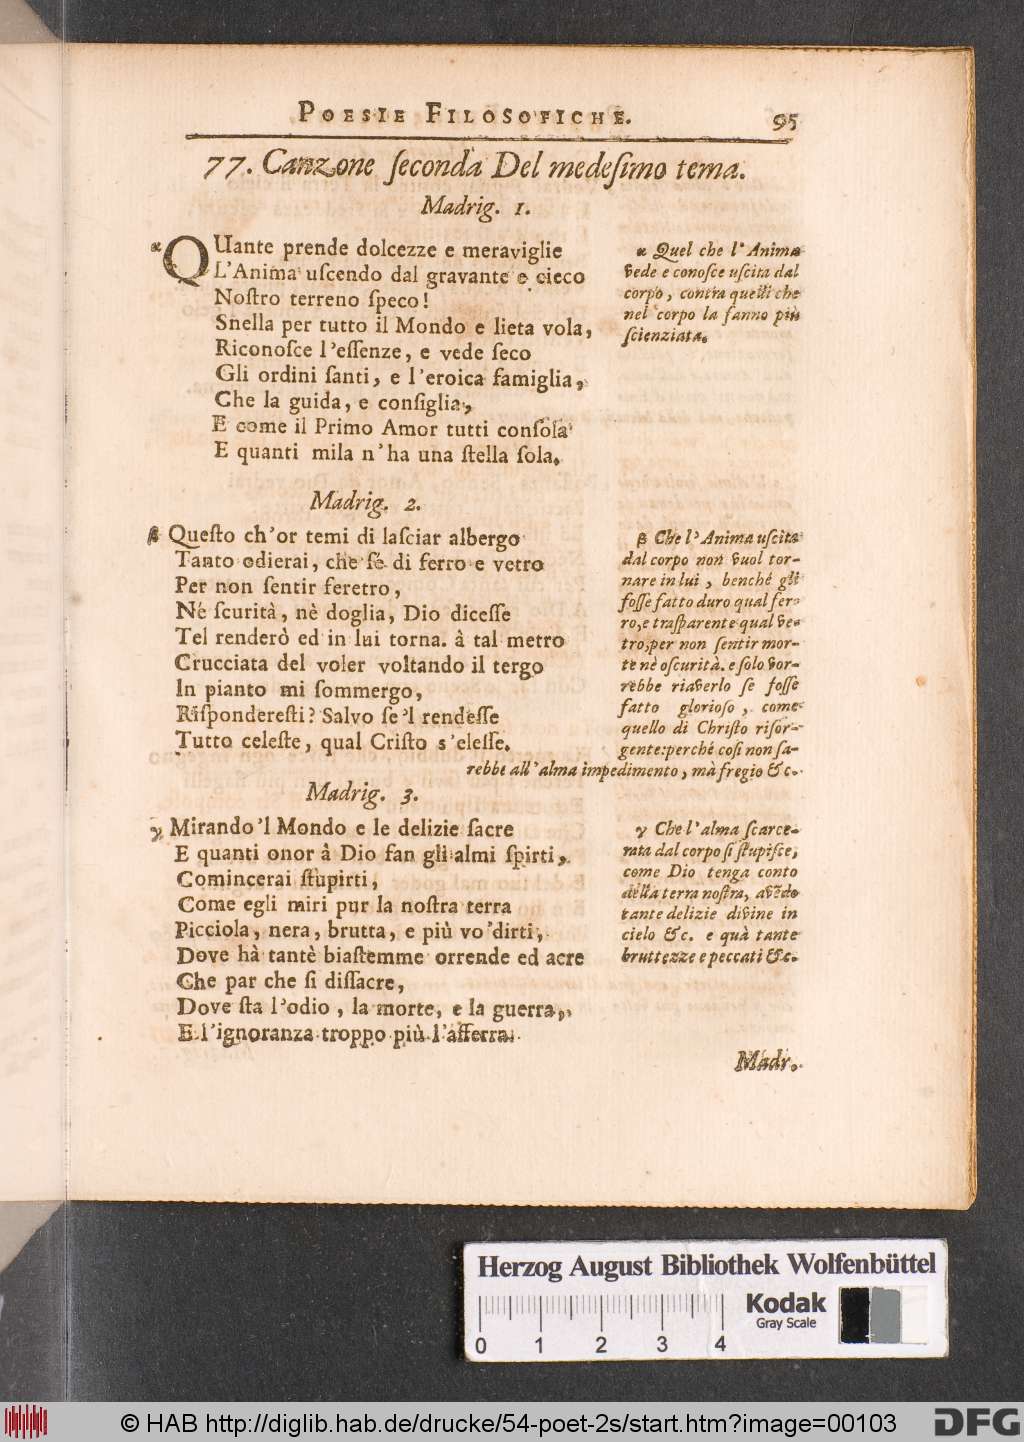 POESIE FILOSOFICHE. 95
77. Canzone ſeconda Del medeſimo tema.
Madrig. 1.
α QUante prende dolcezze e meraviglie
L'Anima uſcendo dal gravante e cieco
Noſtro terreno ſpeco!
Snella per tutto il Mondo e lieta vola,
Riconoſce l'eſſenze, e vede ſeco
Gli ordini ſanti, e l'eroica famiglia,
Che la guida, e conſiglia,
E come il Primo Amor tutti conſola
E quanti mila n'ha una ſtella ſola.
α Quel che l'Anima
vede e conoſce uſcita dal
corpo, contra quelli che
nel corpo la fanno più
ſcienziata.
Madrig. 2.
β Queſto ch'or temi di laſciar albergo
Tanto odierai, che ſe di ferro e vetro
Per non ſentir feretro,
Nè scurità, nè doglia, Dio diceſſe
Tel renderò ed in lui torna. à tal metro
Crucciata del voler voltando il tergo
In pianto mi ſommergo,
Riſpondereſti? Salvo ſe'l rendeſſe
Tutto celeſte, qual Criſto s'eleſſe.
β Che l'Anima uſcita
dal corpo non vuol tor-
nare in lui, benché gli
foſſe fatto duro qual fer-
ro, e traſparente qual ve-
tro, per non ſentir mor-
te nè oſcurità. e ſolo vor-
rebbe riaverlo ſe foſſe
fatto glorioſo, come
quello di Chriſto riſor-
gente: perché coſi non ſa-
rebbe all'alma impedimento, mà fregio &c.
Madrig. 3.
γ Mirando'l Mondo e le delizie ſacre
E quanti onor à Dio fan gli almi ſpirti,
Comincerai ſtupirti,
Come egli miri pur la noſtra terra
Picciola, nera, brutta, e più vo'dirti,
Dove hà tantè biaſtemme orrende ed acre
Che par che ſi diſſacre,
Dove ſta l'odio, la morte, e la guerra,
E l'ignoranza troppo più l'afferra.
γ Che l'alma ſcarce-
rata dal corpo ſi ſtupiſce,
come Dio tenga conto
della terra noſtra, avēdo
tante delizie divine in
cielo &c. e quà tante
bruttezze e peccati &c.
Madr.
Herzog August Bibliothek Wolfenbüttel
0 1 2 3 4
Kodak
Gray Scale
© HAB http://diglib.hab.de/drucke/54-poet-2s/start.htm?image=00103
DFG